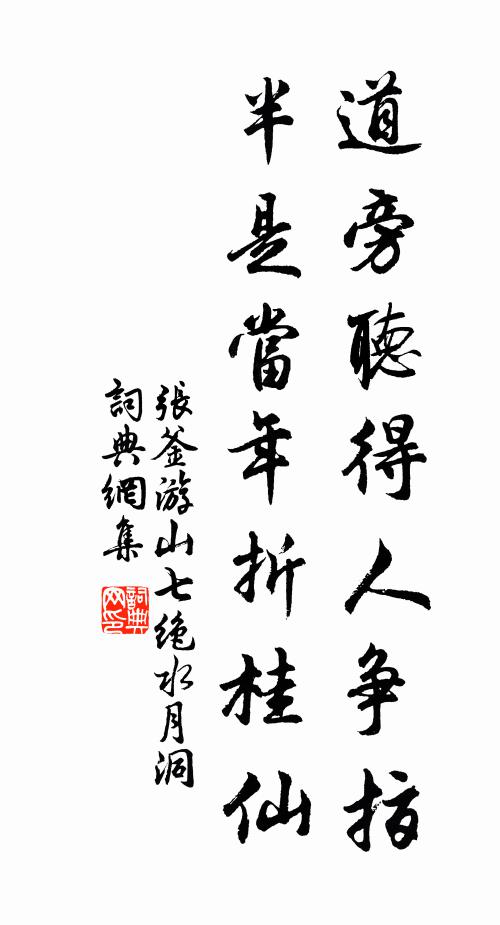 道旁聽得人争指
半是當年折桂仙
張釜游山七绝水月洞
詞典網集
詞典网印